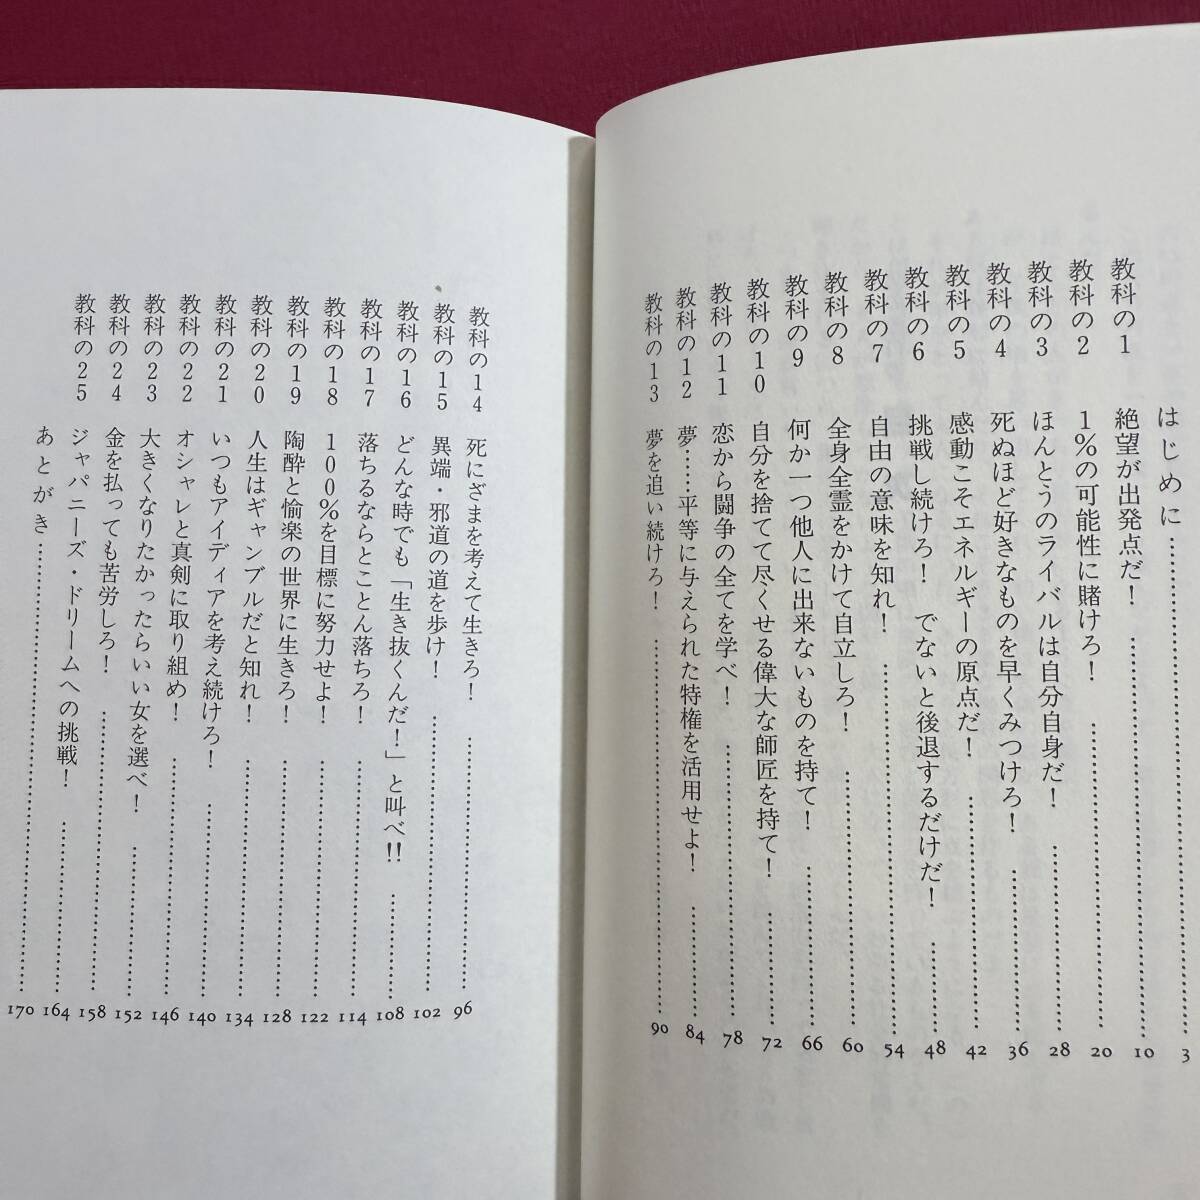 はじめに……………………3
教科の1 絶望が出発点だ！……………………10
教科の2 1％の可能性に賭けろ！……………………20
教科の3 ほんとうのライバルは自分自身だ！……………………28
教科の4 死ぬほど好きなものを早くみつけろ！……………………36
教科の5 感動こそエネルギーの原点だ！……………………42
教科の6 挑戦し続けろ！ でないと後退するだけだ！……………………48
教科の7 自由の意味を知れ！……………………54
教科の8 全身全霊をかけて自立しろ！……………………60
教科の9 何か一つ他人に出来ないものを持て！……………………66
教科の10 自分を捨てて尽くせる偉大な師匠を持て！……………………72
教科の11 恋から闘争の全てを学べ！……………………78
教科の12 夢……平等に与えられた特権を活用せよ！……………………84
教科の13 夢を追い続けろ！……………………90
教科の14 死にざまを考えて生きろ！……………………96
教科の15 異端・邪道の道を歩け！……………………102
教科の16 どんな時でも「生き抜くんだ！」と叫べ!!……………………108
教科の17 落ちるならとことん落ちろ！……………………114
教科の18 100％を目標に努力せよ！……………………122
教科の19 陶酔と愉楽の世界に生きろ！……………………128
教科の20 人生はギャンブルだと知れ！……………………134
教科の21 いつもアイディアを考え続けろ！……………………140
教科の22 オシャレと真剣に取り組め！……………………146
教科の23 大きくなりたかったらいい女を選べ！……………………152
教科の24 金を払っても苦労しろ！……………………158
教科の25 ジャパニーズ・ドリームへの挑戦！……………………164
あとがき……………………170